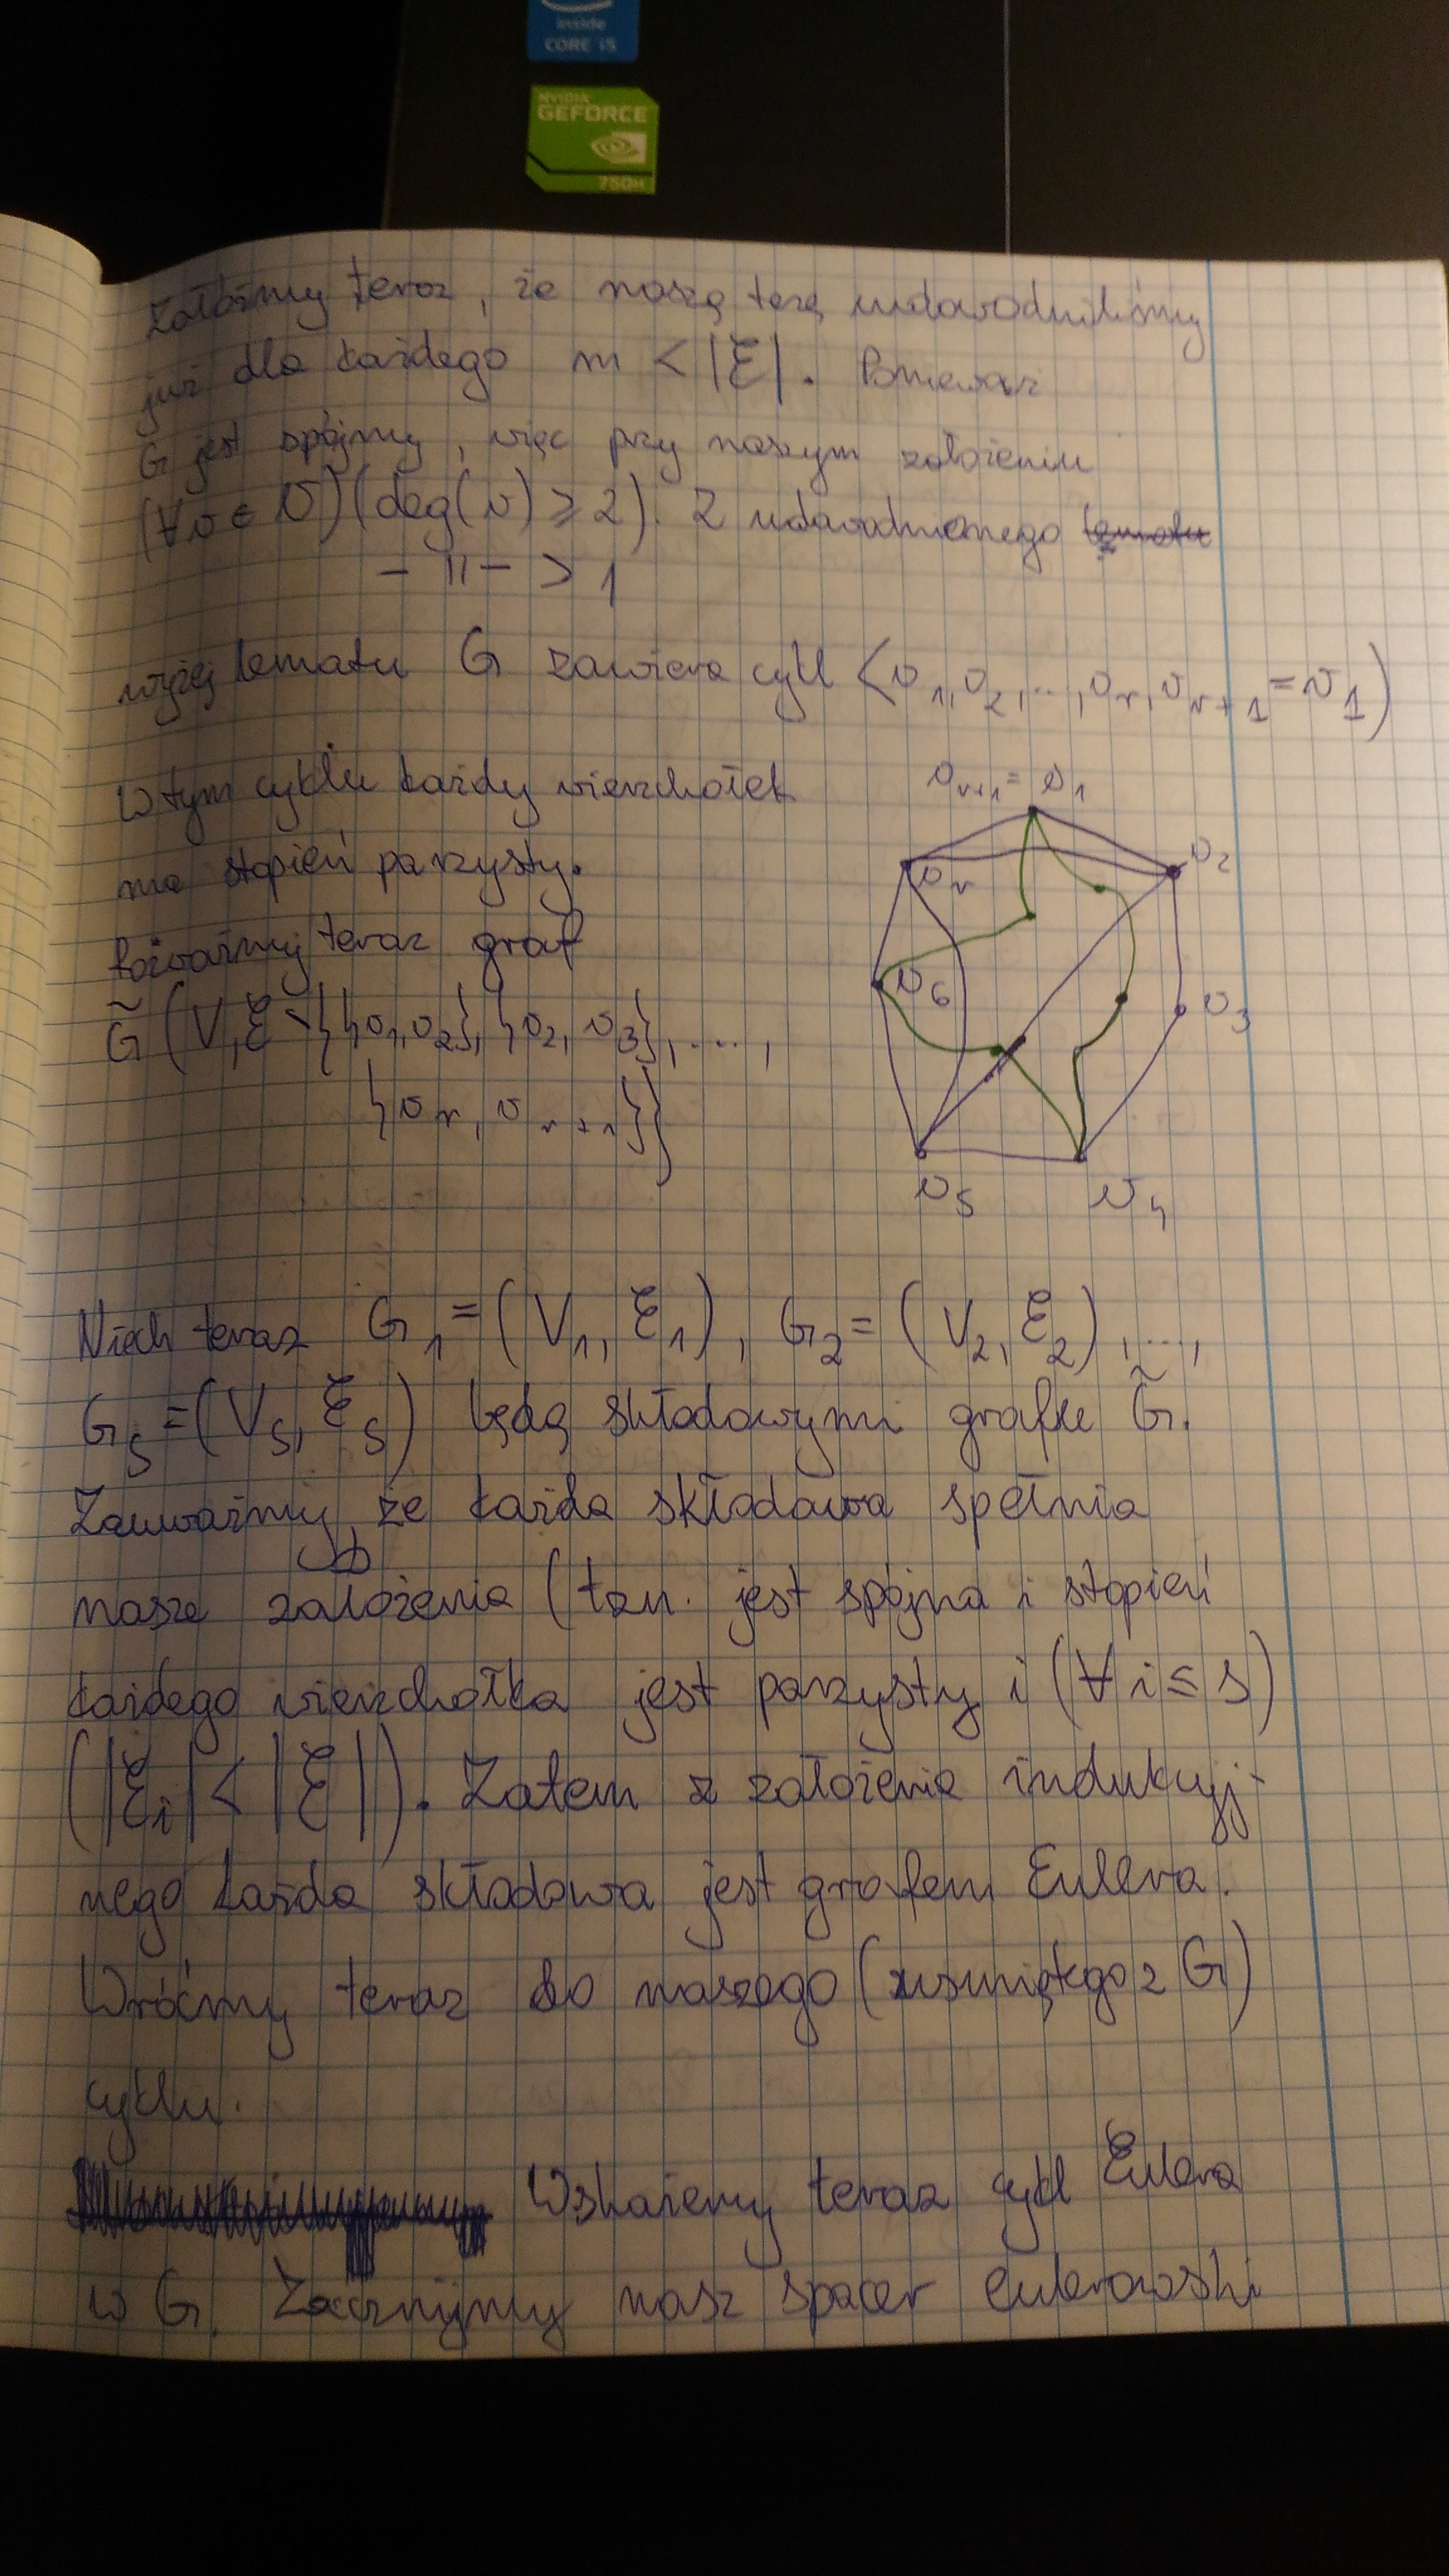 inside
CORE i5
NVIDIA
GEFORCE
750M
Załóżmy teraz, że naszą tezę udowodniliśmy
już dla każdego m < |ℰ|. Ponieważ
G jest spójny, więc przy naszym założeniu
(∀v ∈ V)(deg(v) ≥ 2). Z udowodnionego lematu
– 11 – > 1
wyżej lematu G zawiera cykl (v1, v2, ..., vr, vr+1 = v1)
W tym cyklu każdy wierzchołek
ma stopień parzysty.
Rozważmy teraz graf
G̃ (V, ℰ \ {{v1, v2}, {v2, v3}, ....,
{vr, vr+1}}
vr+1 = v1
v2
vr
v6
v3
v5
v4
Niech teraz G1 = (V1, ℰ1), G2 = (V2, ℰ2), ...,
Gs = (Vs, ℰs) będą składowymi grafu G̃.
Zauważmy, że każda składowa spełnia
nasze założenia (tzn. jest spójna i stopień
każdego wierzchołka jest parzysty i (∀ i ≤ s)
(|ℰi| < |ℰ|). Zatem z założenia indukcyj-
nego każda składowa jest grafem Eulera.
Wróćmy teraz do naszego (usuniętego z G)
cyklu.
Wskażemy teraz cykl Eulera
w G. Zacznijmy nasz spacer eulerowski